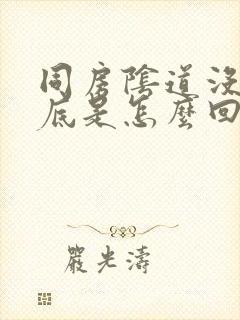 同房陰道沒
底是怎麼回
嚴光濤